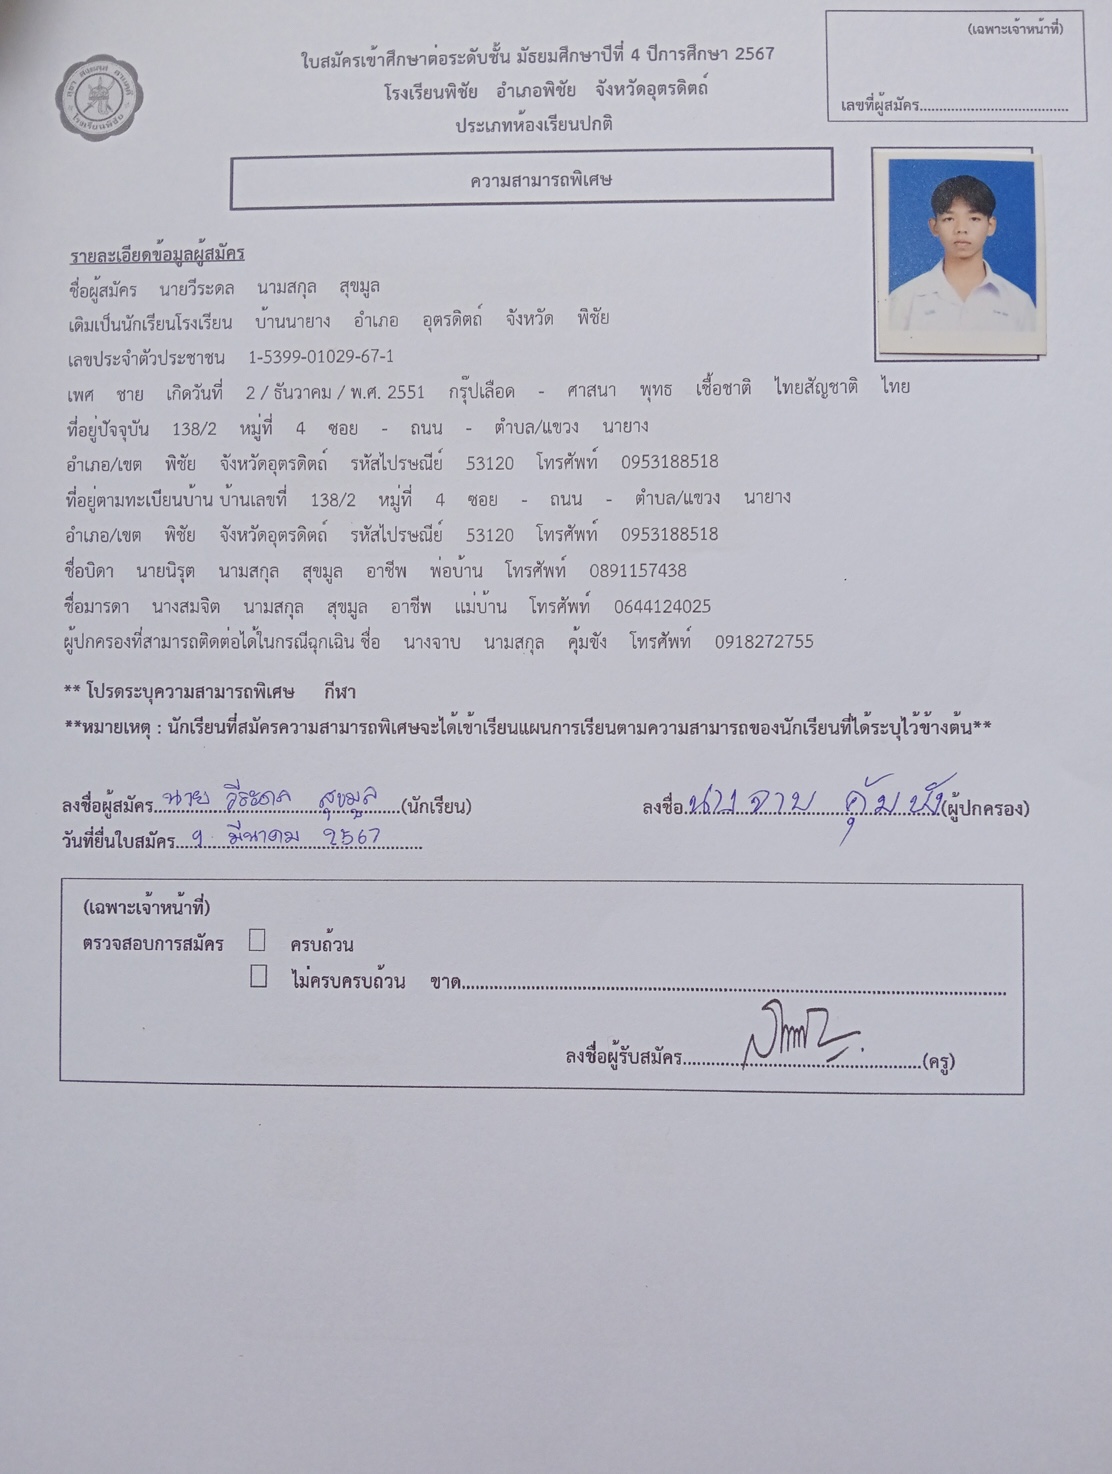 (เฉพาะเจ้าหน้าที่)
เลขที่ผู้สมัคร
ใบสมัครเข้าศึกษาต่อระดับชั้น มัธยมศึกษาปีที่ 4 ปีการศึกษา 2567
โรงเรียนพิชัย อำเภอพิชัย จังหวัดอุตรดิตถ์
ประเภทห้องเรียนปกติ
ความสามารถพิเศษ
รายละเอียดข้อมูลผู้สมัคร
ชื่อผู้สมัคร นายวีระดล นามสกุล สุขมูล
เดิมเป็นนักเรียนโรงเรียน บ้านนายาง อำเภอ อุตรดิตถ์ จังหวัด พิชัย
เลขประจำตัวประชาชน 1-5399-01029-67-1
เพศ ชาย เกิดวันที่ 2 / ธันวาคม / พ.ศ. 2551 กรุ๊ปเลือด - ศาสนา พุทธ เชื้อชาติ ไทยสัญชาติ ไทย
ที่อยู่ปัจจุบัน 138/2 หมู่ที่ 4 ซอย - ถนน - ตำบล/แขวง นายาง
อำเภอ/เขต พิชัย จังหวัดอุตรดิตถ์ รหัสไปรษณีย์ 53120 โทรศัพท์ 0953188518
ที่อยู่ตามทะเบียนบ้าน บ้านเลขที่ 138/2 หมู่ที่ 4 ซอย - ถนน - ตำบล/แขวง นายาง
อำเภอ/เขต พิชัย จังหวัดอุตรดิตถ์ รหัสไปรษณีย์ 53120 โทรศัพท์ 0953188518
ชื่อบิดา นายนิรุต นามสกุล สุขมูล อาชีพ พ่อบ้าน โทรศัพท์ 0891157438
ชื่อมารดา นางสมจิต นามสกุล สุขมูล อาชีพ แม่บ้าน โทรศัพท์ 0644124025
ผู้ปกครองที่สามารถติดต่อได้ในกรณีฉุกเฉิน ชื่อ นางจาบ นามสกุล คุ้มขัง โทรศัพท์ 0918272755
** โปรดระบุความสามารถพิเศษ กีฬา
**หมายเหตุ : นักเรียนที่สมัครความสามารถพิเศษจะได้เข้าเรียนแผนการเรียนตามความสามารถของนักเรียนที่ได้ระบุไว้ข้างต้น**
ลงชื่อผู้สมัคร นาย วีระดล สุขมูล (นักเรียน) ลงชื่อ นางจาบ คุ้มขัง (ผู้ปกครอง)
วันที่ยื่นใบสมัคร 9 มีนาคม 2567
(เฉพาะเจ้าหน้าที่)
ตรวจสอบการสมัคร ครบถ้วน
ไม่ครบครบถ้วน ขาด
ลงชื่อผู้รับสมัคร (ครู)